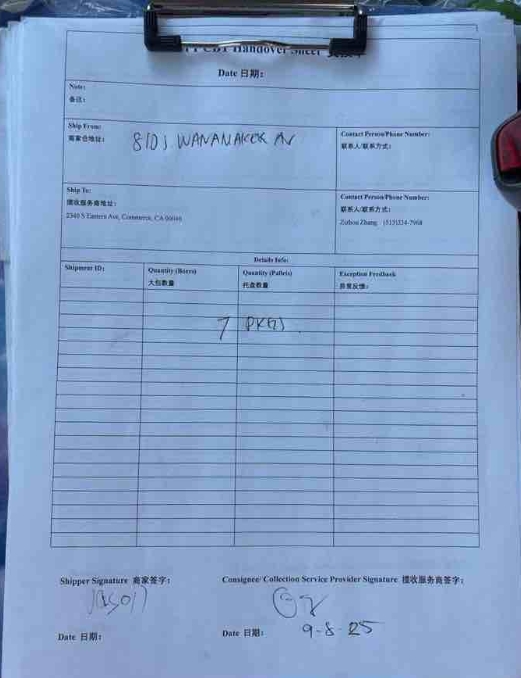 Handover Sheet
Date 日期:
Note:
备注:
Ship From:
商家仓地址:
WANAMAKER AV
Contact Person/Phone Number:
联系人/联系方式:
Ship To:
揽收服务商地址:
2340 S Eastern Ave, Commerce, CA
Contact Person/Phone Number:
联系人/联系方式:
Zhang
Details Info:
Shipment ID: Quantity (Boxes) Quantity (Pallets) Exception Feedback
大包数量 托盘数量 异常反馈:
7 PKGS
Shipper Signature 商家签字: Consignee/ Collection Service Provider Signature 揽收服务商签字:
Date 日期: Date 日期: 9-8-25